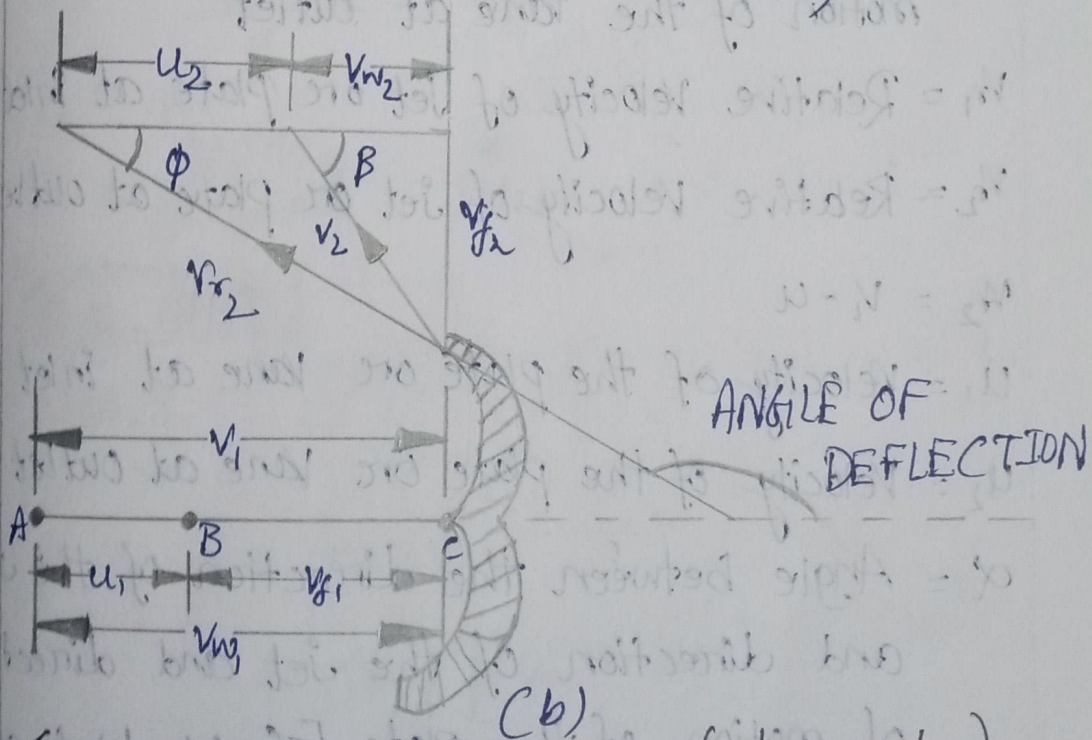 U₂
Vw₂
φ
β
V₂
Vf₂
Vr₂
ANGLE OF
DEFLECTION
V₁
A
B
C
u₁
Vf₁
Vw₁
(b)